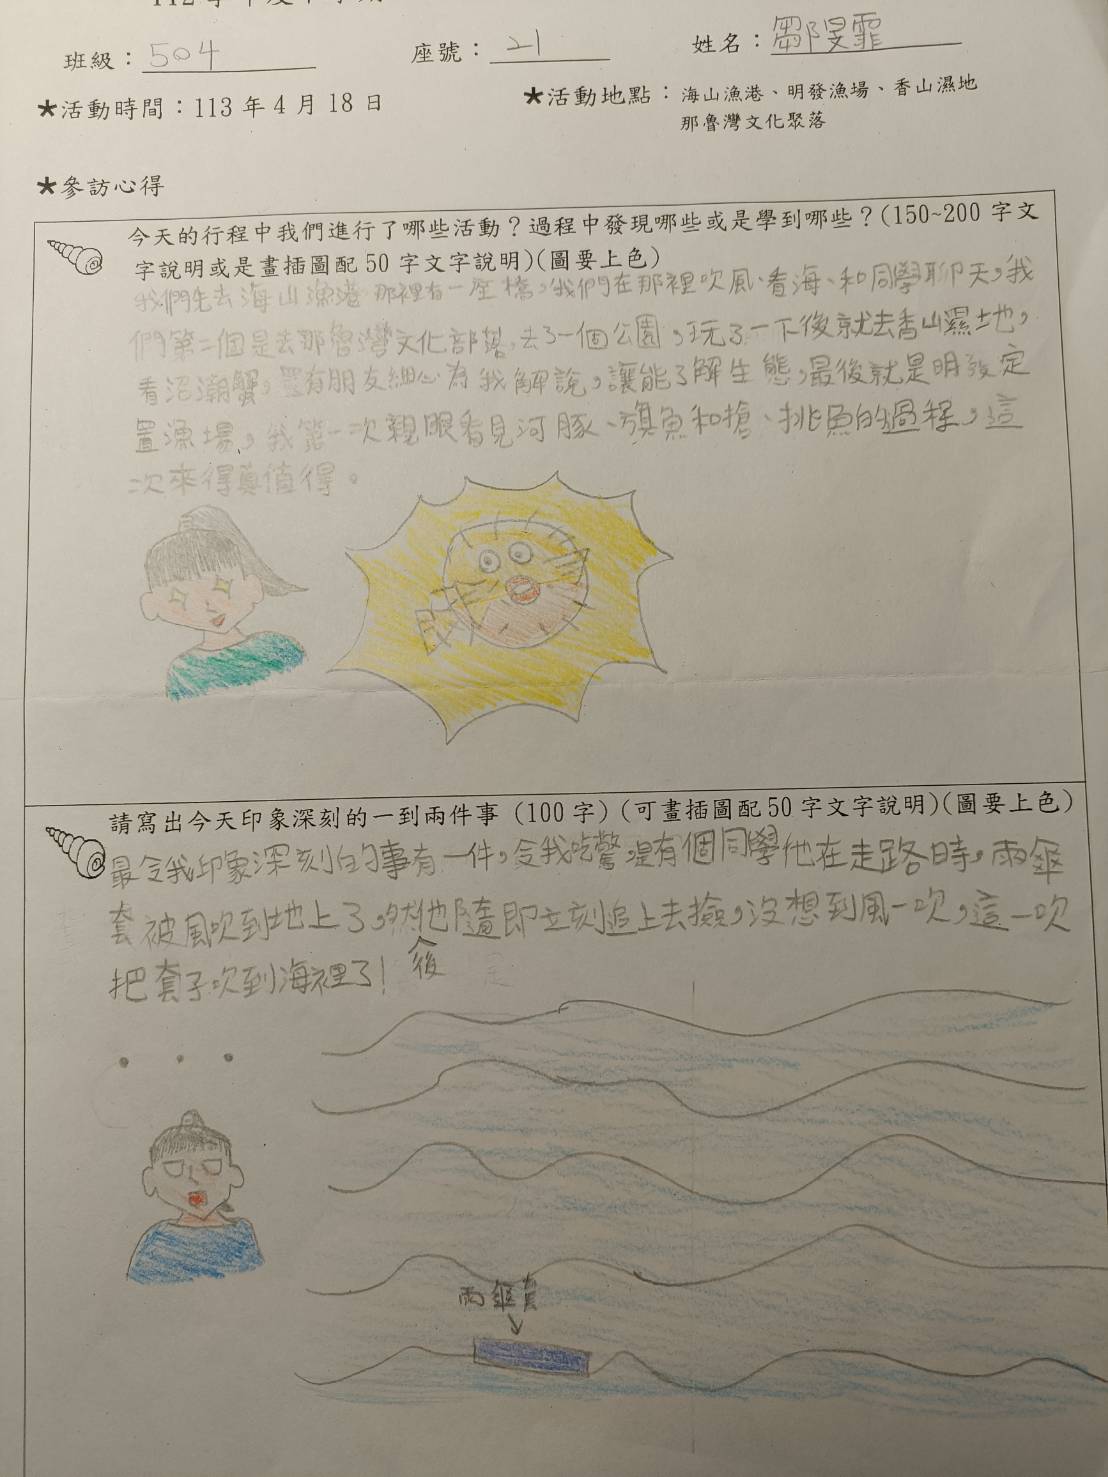 班級：504 座號：21 姓名：鄒旻霏
★活動時間：113 年 4 月 18 日 ★活動地點：海山漁港、明發漁場、香山濕地
那魯灣文化聚落
★參訪心得
今天的行程中我們進行了哪些活動？過程中發現哪些或是學到哪些？(150~200 字文
字說明或是畫插圖配 50 字文字說明)(圖要上色)
我們先去海山漁港 那裡有一座橋，我們在那裡吹風、看海、和同學聊天，我
們第二個是去那魯灣文化部落，去了一個公園，玩了一下後就去香山濕土地，
看沼潮蟹，還有朋友細心為我解說，讓能了解生態，最後就是明發定
置漁場，我第一次親眼看見河豚、旗魚和搶、挑魚的過程，這
次來得真值得。
請寫出今天印象深刻的一到兩件事 (100 字) (可畫插圖配 50 字文字說明)(圖要上色)
最令我印象深刻的事有一件，令我吃驚，是有個同學他在走路時，雨傘
套被風吹到地上了，然後他隨即立刻追上去撿，沒想到風一吹，這一吹
把套子吹到海裡了！
雨傘套